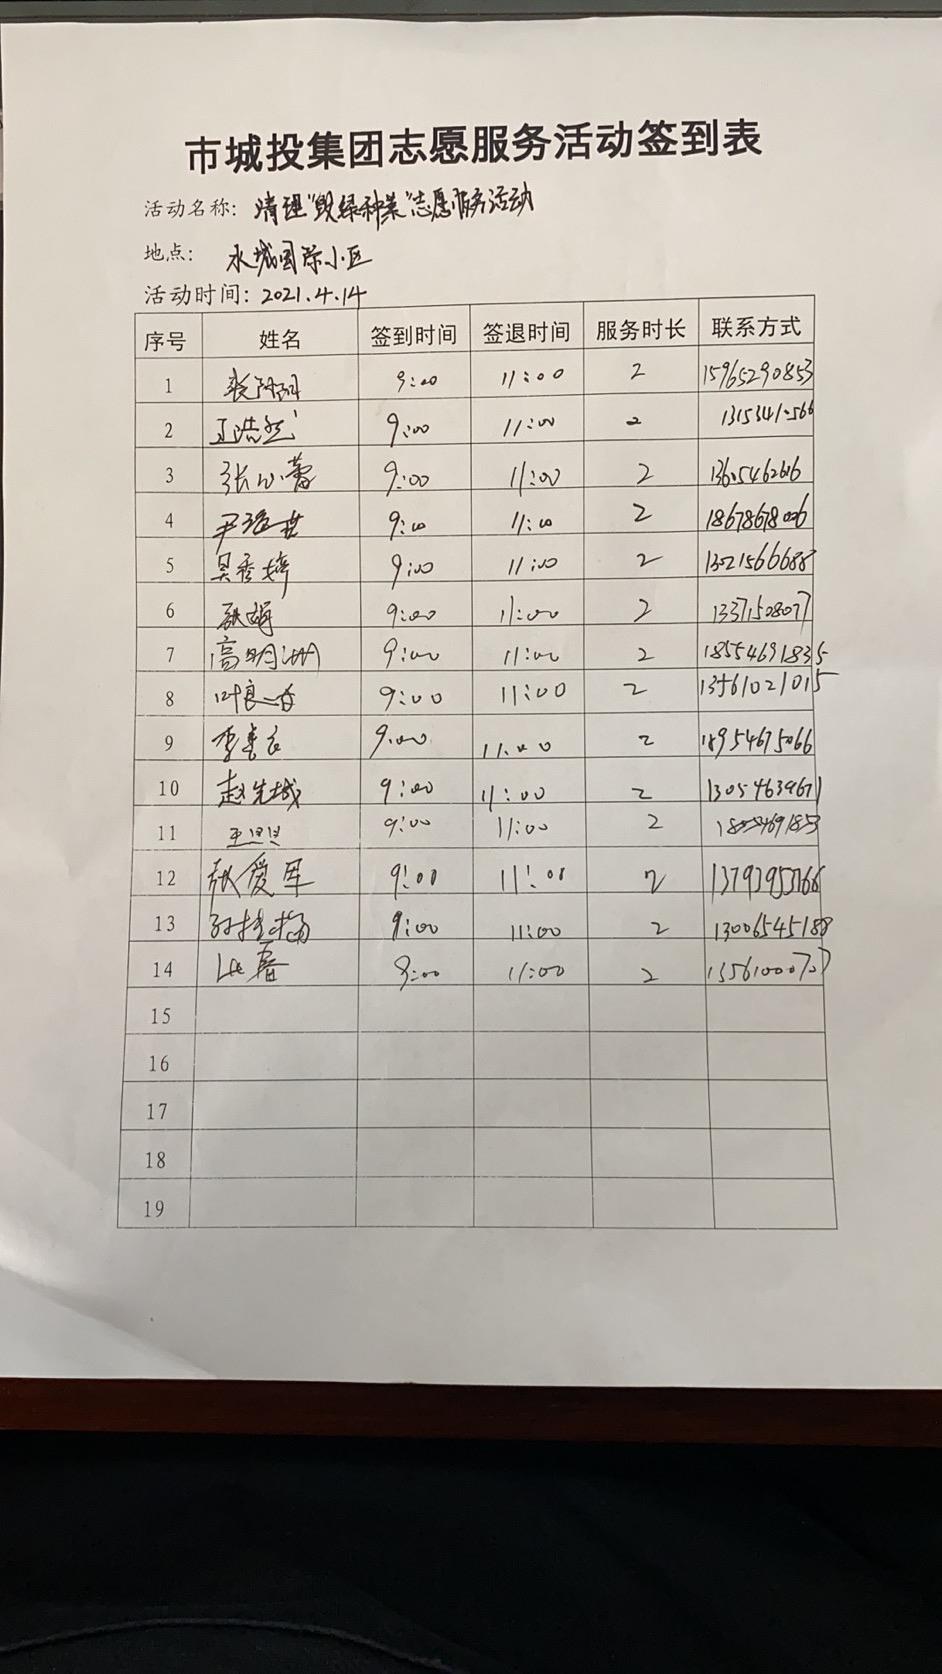 市城投集团志愿服务活动签到表
活动名称: 清理"毁绿种菜"志愿服务活动
地点: 水城国际小区
活动时间: 2021.4.14
序号 姓名 签到时间 签退时间 服务时长 联系方式
1 9:00 11:00 2 15965290853
2 王浩然 9:00 11:00 2
3 张心蕾 9:00 11:00 2
4 9:00 11:00 2 18678678006
5 吴秀婷 9:00 11:00 2 13021566688
6 9:00 11:00 2 13371508077
7 高明洲 9:00 11:00 2 18554691835
8 叶良香 9:00 11:00 2 13561021015
9 9:00 11:00 2 18954675066
10 赵先城 9:00 11:00 2 13054639671
11 9:00 11:00 2
12 张爱军 9:00 11:00 2
13 孙桂梅 9:00 11:00 2 13006545188
14 9:00 11:00 2 13561000707
15
16
17
18
19